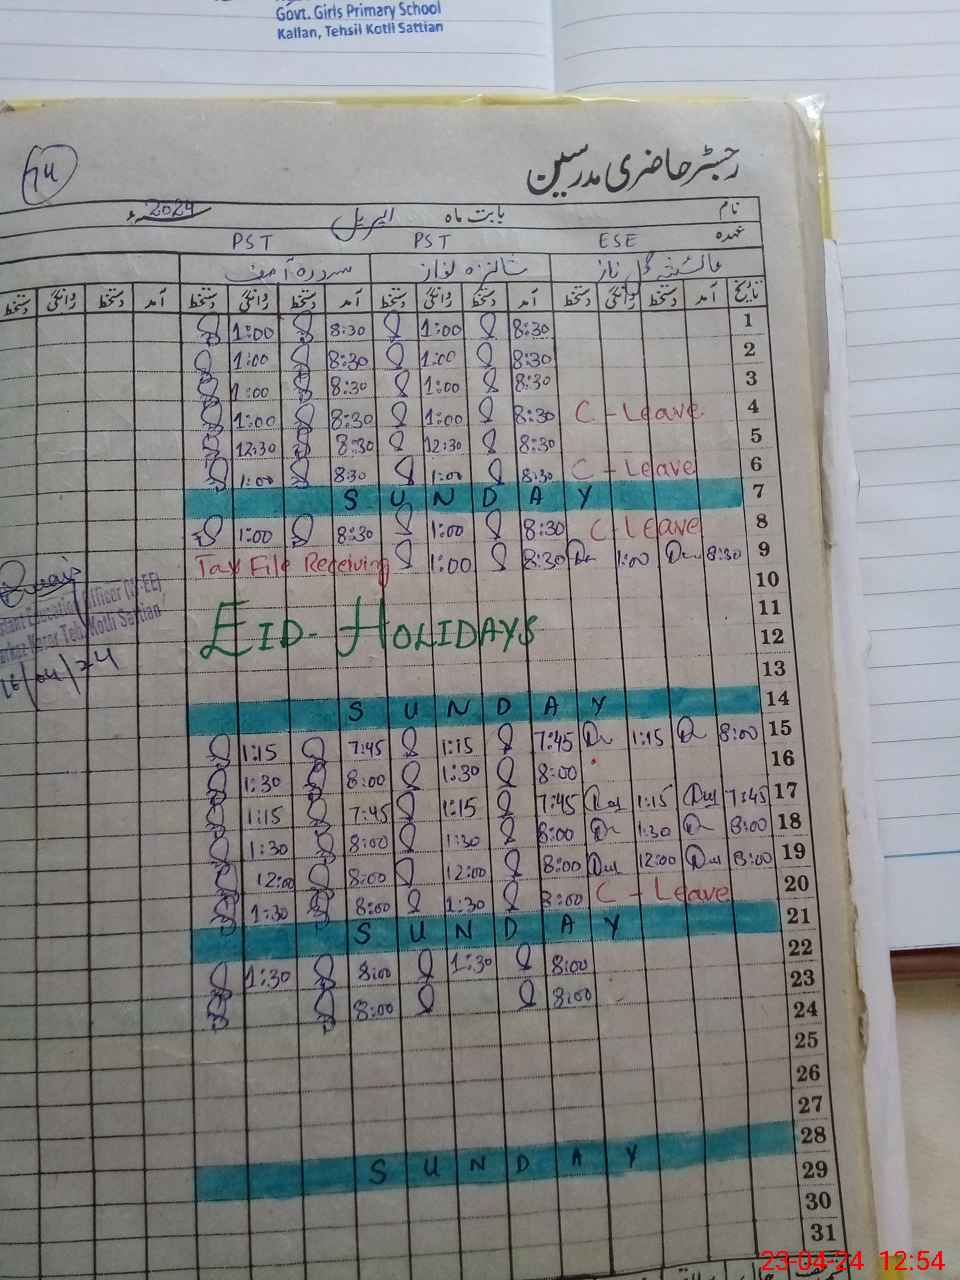 Govt. Girls Primary School
Kallan, Tehsil Kotli Sattian
رجسٹر حاضری مدرسین
نام بابت ماہ اپریل 2024ء
عہدہ ESE PST PST
عائشہ گل ناز
تاریخ آمد دستخط روانگی دستخط آمد دستخط روانگی دستخط آمد دستخط روانگی دستخط آمد دستخط روانگی دستخط
1:00 8:30 1:00 8:30 1
1:00 8:30 1:00 8:30 2
1:00 8:30 1:00 8:30 3
1:00 8:30 1:00 8:30 C - Leave 4
12:30 8:30 12:30 8:30 5
1:00 8:30 1:00 8:30 C - Leave 6
SUNDAY 7
1:00 8:30 1:00 8:30 C - Leave 8
Tax File Receiving 1:00 8:30 1:00 8:30 9
10
11
EID - HOLIDAYS 12
13
SUNDAY 14
1:15 7:45 1:15 7:45 1:15 8:00 15
1:30 8:00 1:30 8:00 16
1:15 7:45 1:15 7:45 1:15 7:45 17
1:30 8:00 1:30 8:00 1:30 8:00 18
12:00 8:00 12:00 8:00 12:00 8:00 19
1:30 8:00 1:30 8:00 C - Leave 20
SUNDAY 21
1:30 8:00 1:30 8:00 22
8:00 8:00 23
24
25
26
27
SUNDAY 28
29
30
31
Education Officer
Kotli Sattian
16/04/24
23-04-24 12:54